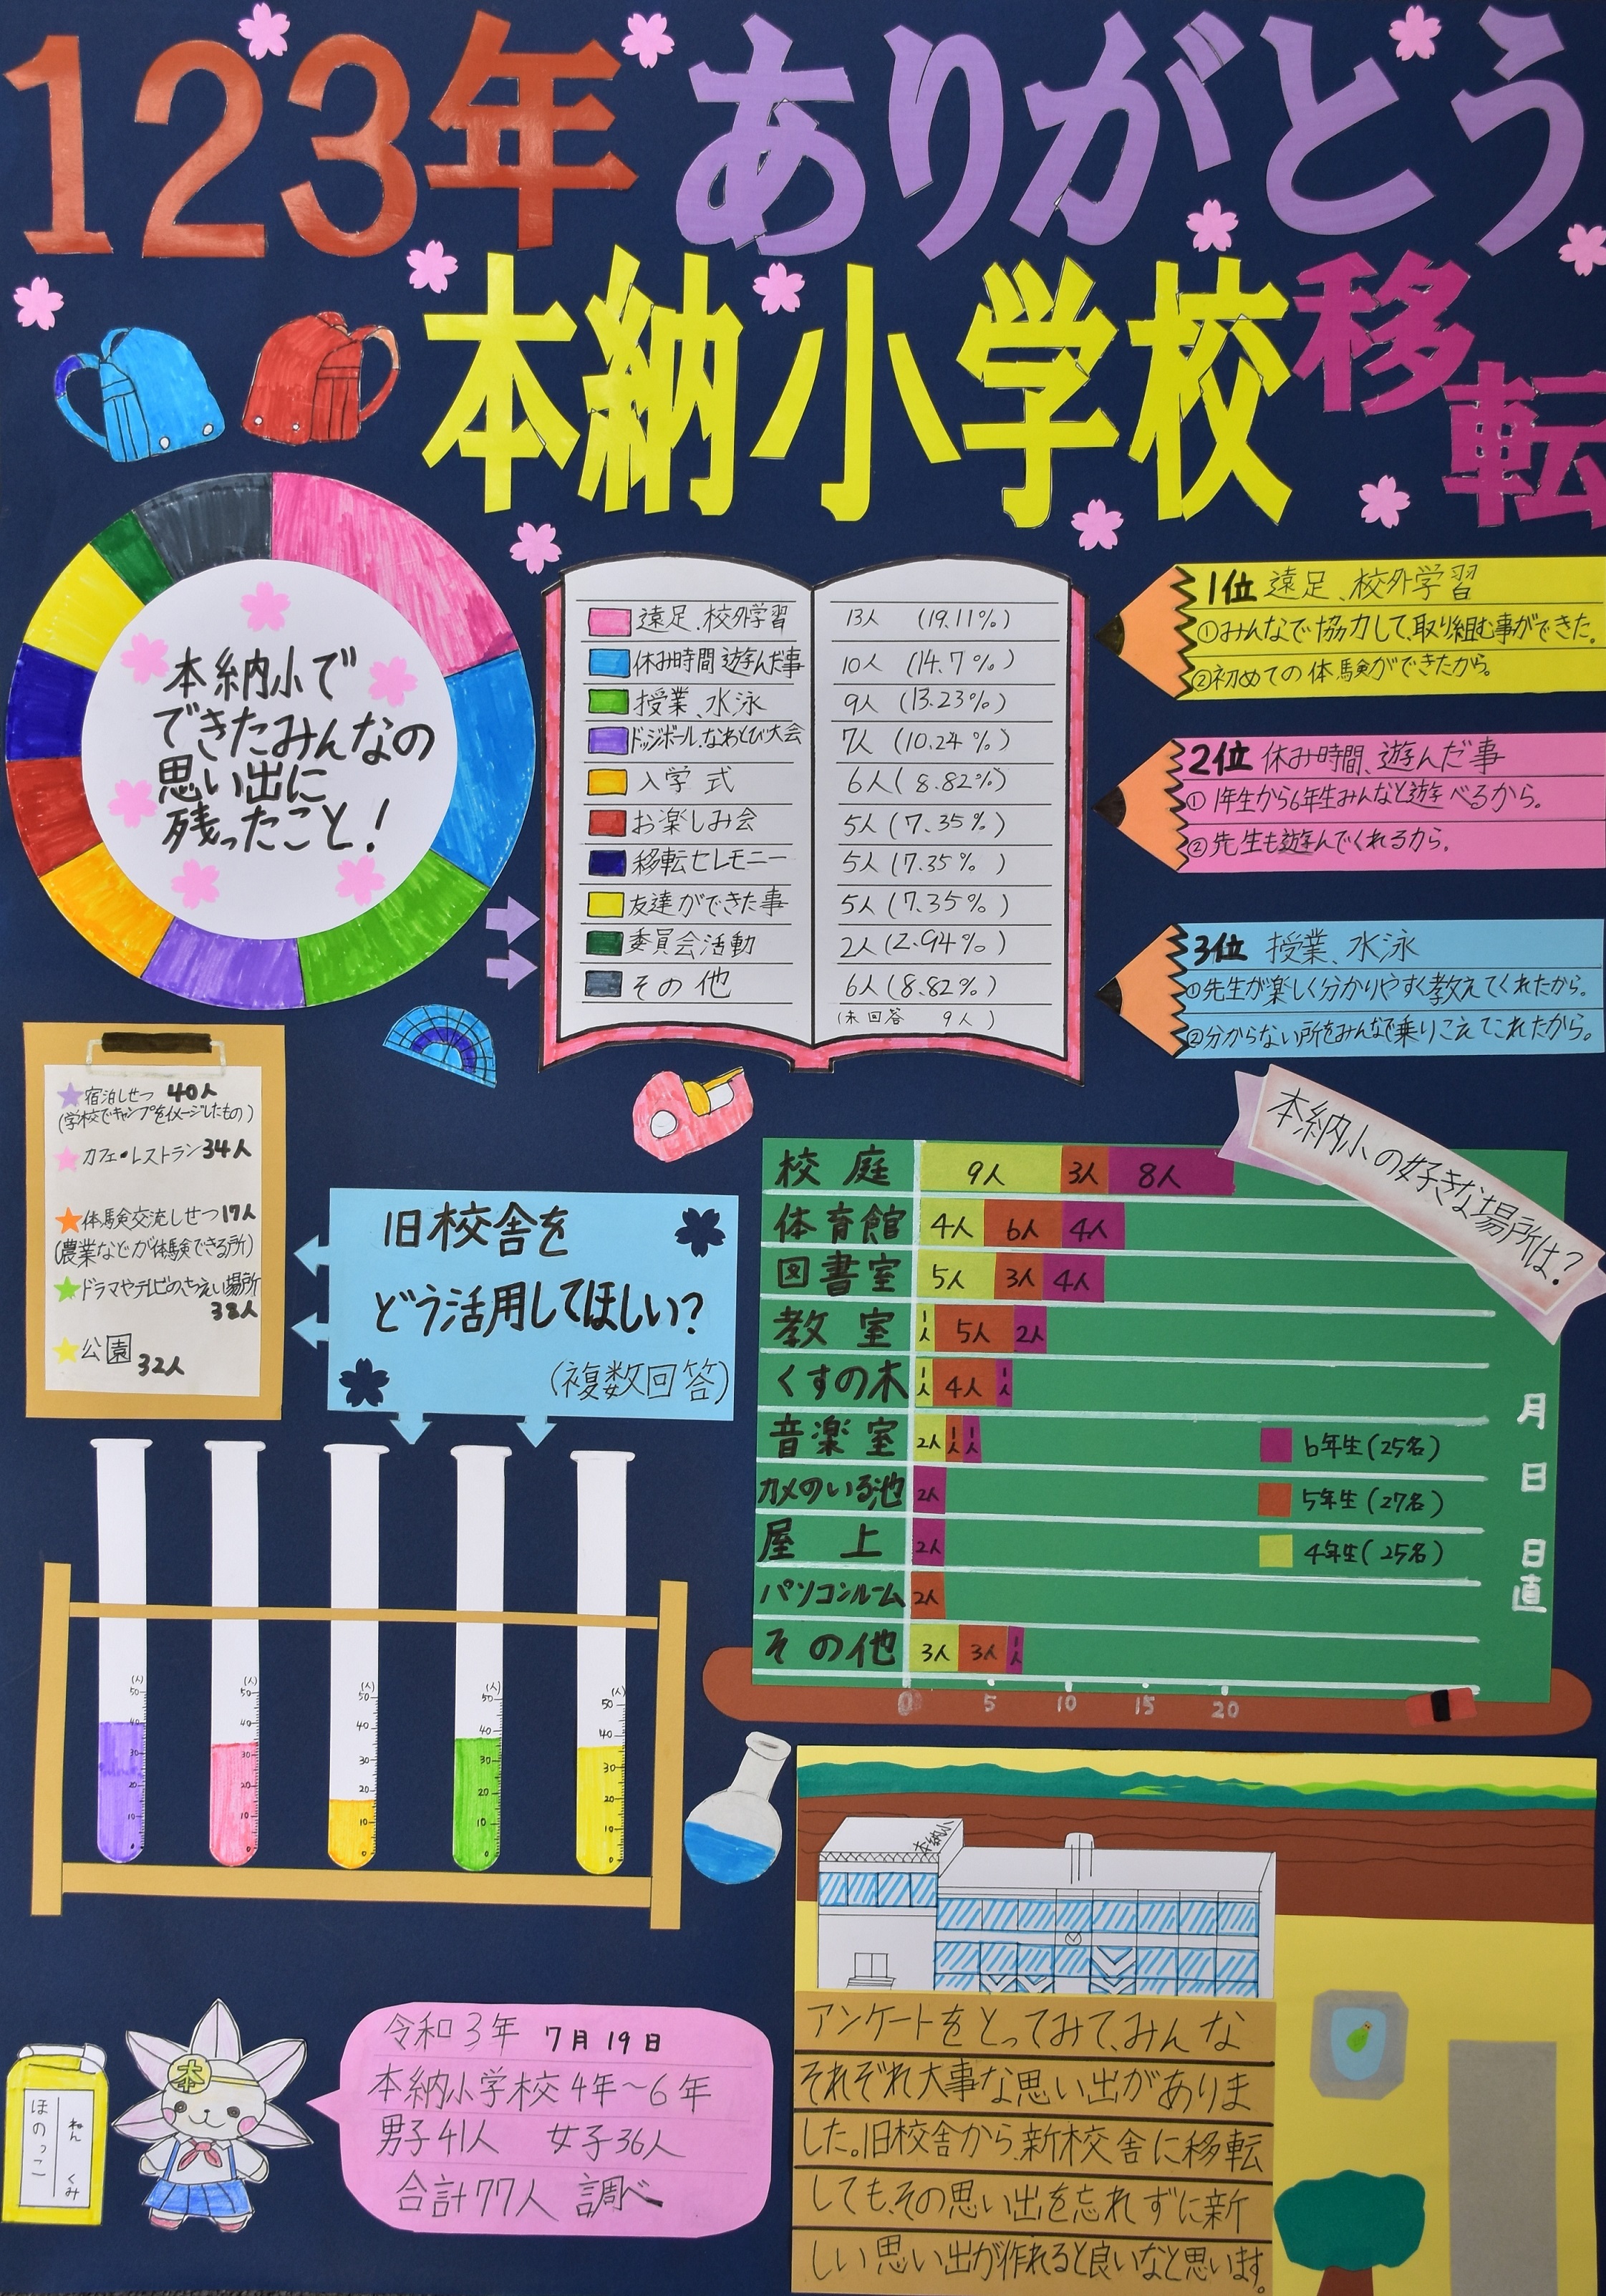 123年 ありがとう
本納小学校 移転
本納小で
できたみんなの
思い出に
残ったこと!
遠足、校外学習 13人 (19.11%)
休み時間 遊んだ事 10人 (14.7%)
授業、水泳 9人 (13.23%)
ドッジボール、なわとび大会 7人 (10.24%)
入学式 6人 (8.82%)
お楽しみ会 5人 (7.35%)
移転セレモニー 5人 (7.35%)
友達ができた事 5人 (7.35%)
委員会活動 2人 (2.94%)
その他 6人 (8.82%)
(未回答 9人)
1位 遠足、校外学習
①みんなで協力して、取り組む事ができた。
②初めての体験ができたから。
2位 休み時間、遊んだ事
① 1年生から6年生みんなと遊べるから。
② 先生も遊んでくれるから。
3位 授業、水泳
①先生が楽しく分かりやすく教えてくれたから。
②分からない所をみんなで乗りこえてこれたから。
宿泊しせつ 40人
(学校でキャンプをイメージしたもの)
カフェ・レストラン 34人
体験交流しせつ 17人
(農業などが体験できる所)
ドラマやテレビのさつえい場所
38人
公園
32人
旧校舎を
どう活用してほしい?
(複数回答)
(人) (人) (人) (人) (人)
50 50 50 50 50
40 40 40 40 40
30 30 30 30 30
20 20 20 20 20
10 10 10 10 10
0 0 0 0 0
本納小の好きな場所は?
校庭 9人 3人 8人
体育館 4人 6人 4人
図書室 5人 3人 4人
教室 1人 5人 2人
くすの木 1人 4人 1人
音楽室 2人 1人 1人
カメのいる池 2人
屋上 2人
パソコンルーム 2人
その他 3人 3人 1人
0 5 10 15 20
6年生(25名)
5年生(27名)
4年生(25名)
月 日 日直
本納小
アンケートをとってみて、みんな
それぞれ大事な思い出がありま
した。旧校舎から、新校舎に移転
しても、その思い出を忘れずに新
しい思い出が作れると良いなと思います。
ねん くみ
ほのっこ
本
令和3年 7月19日
本納小学校4年~6年
男子41人 女子36人
合計77人 調べ